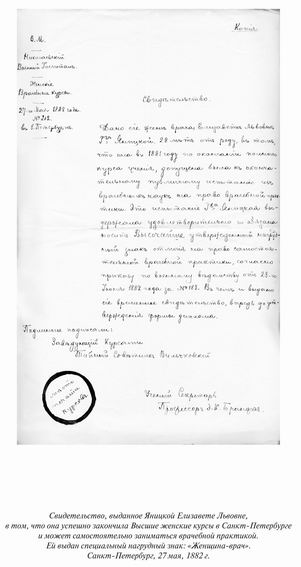 Копія
В. М.
Николаевскій
Военный Госпиталь.
Женскіе
Врачебные Курсы.
27 Мая 1882 года.
въ С. Петербургѣ.
Свидѣтельство.
Дано сіе женщинѣ врачу Елизаветѣ Львовнѣ
Яницкой, 28 лѣтъ отъ роду, въ томъ,
что она въ 1881 году по окончаніи полнаго
курса ученія, допущена была къ оконча-
тельному публичному испытанію изъ
врачебныхъ наукъ на право врачебной прак-
тики. Это испытаніе Г-жа Яницкая вы-
держала удовлетворительно и обязана
носить Высочайше утвержденный нагруд-
ный знакъ
на право самостоя-
тельной врачебной практики, согласно
приказу по военному вѣдомству отъ
1882 года за №
Въ чемъ и выдано
сіе временное свидѣтельство, впредь до ут-
вержденія формы диплома.
Подлинное подписали:
Завѣдующій Курсами
Тайный Совѣтникъ
Ученый Секретарь
Профессоръ
Свидетельство, выданное Яницкой Елизавете Львовне,
в том, что она успешно закончила Высшие женские курсы в Санкт-Петербурге
и может самостоятельно заниматься врачебной практикой.
Ей выдан специальный нагрудный знак: «Женщина-врач».
Санкт-Петербург, 27 мая, 1882 г.